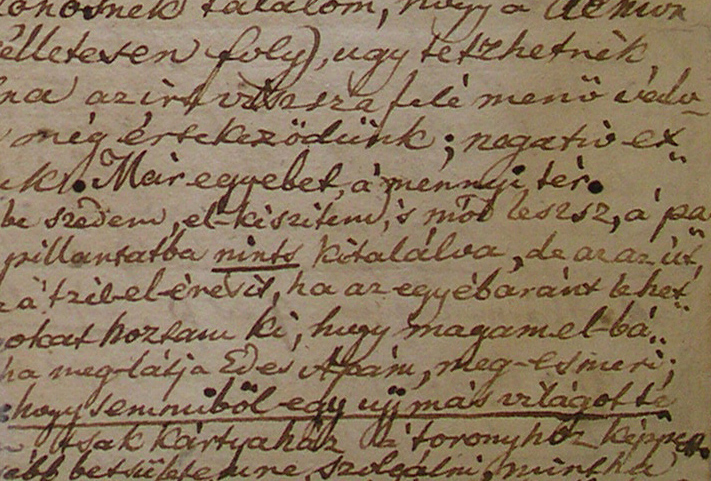 találom, hogy a
élletesen foly), ugy tetzhetnék
na az irt viszsza felé menő
még értekeződünk; negativ ex
uk. Már egyebet, á mennyi tér.
be szedem, el-készitem, 's mód leszsz, á pa
pillantatba nints kitalálva, de az az út,
á tzél-el-érésit, ha az egyébaránt lehet
okat hoztam ki, hogy magam el-bá
ha meg-látja Édes Apám, meg-esmeri;
hogy semmiből egy ujj más világot te
tsak kártyaház á toronyhoz képpest
ább betsületemre szolgálni, mintha